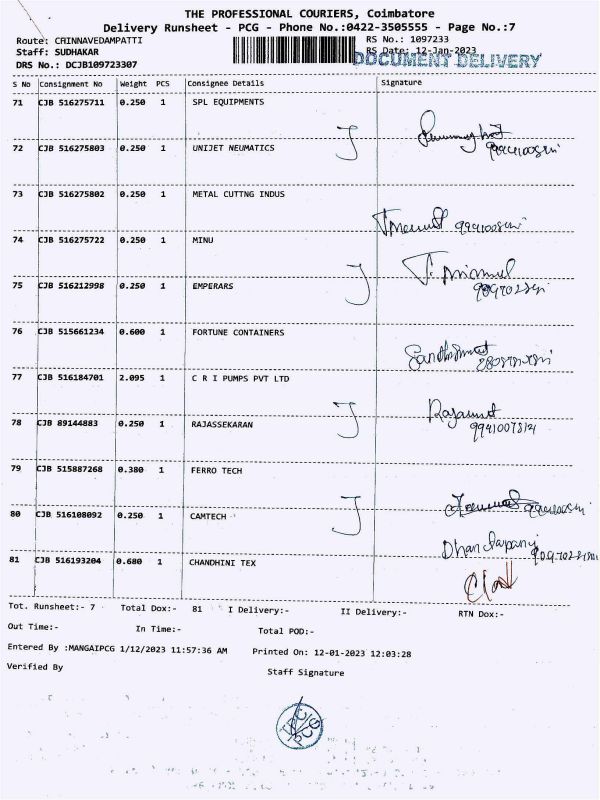 THE PROFESSIONAL COURIERS, Coimbatore
Delivery Runsheet - PCG - Phone No.:0422-3505555 - Page No.:7
Route: CHINNAVEDAMPATTI RS No.: 1097233
Staff: SUDHAKAR RS Date: 12-Jan-2023
DOCUMENT DELIVERY
DRS No.: DCJB109723307
S No Consignment No Weight PCS Consignee Details Signature
71 CJB 516275711 0.250 1 SPL EQUIPMENTS
72 CJB 516275803 0.250 1 UNIJET NEUMATICS
73 CJB 516275802 0.250 1 METAL CUTTNG INDUS
74 CJB 516275722 0.250 1 MINU
75 CJB 516212998 0.250 1 EMPERARS
76 CJB 515661234 0.600 1 FORTUNE CONTAINERS
77 CJB 516184701 2.095 1 C R I PUMPS PVT LTD
78 CJB 89144883 0.250 1 RAJASSEKARAN
79 CJB 515887268 0.380 1 FERRO TECH
80 CJB 516108092 0.250 1 CAMTECH
81 CJB 516193204 0.680 1 CHANDHINI TEX
Tot. Runsheet:- 7 Total Dox:- 81 I Delivery:- II Delivery:- RTN Dox:-
Out Time:- In Time:- Total POD:-
Entered By :MANGAIPCG 1/12/2023 11:57:36 AM Printed On: 12-01-2023 12:03:28
Verified By Staff Signature